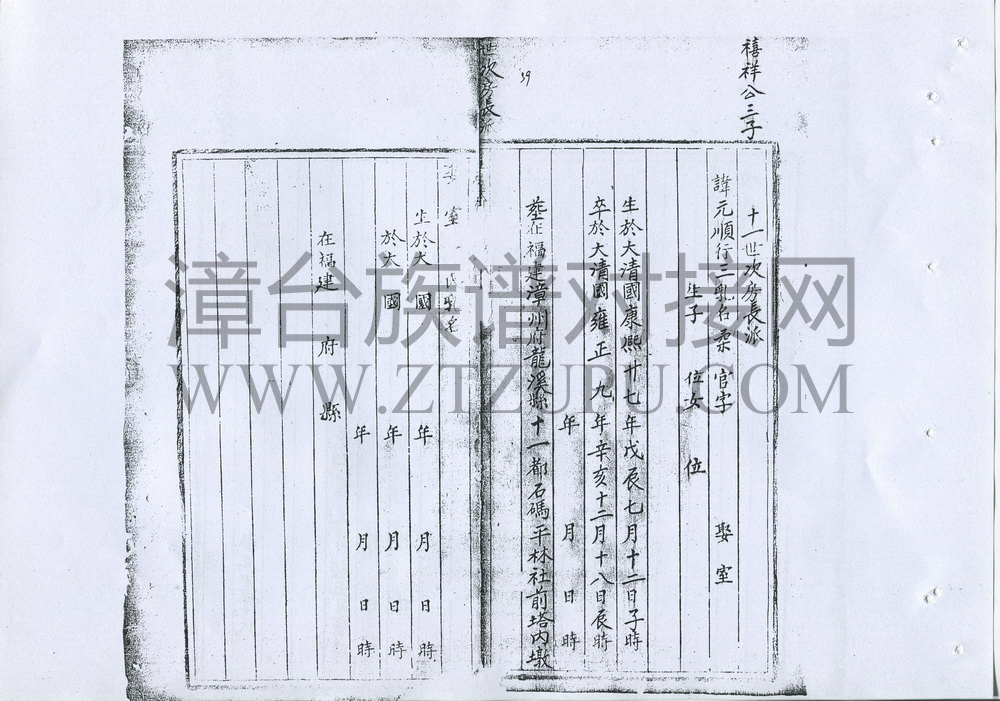 禧祥公三子
十一世次房長派
諱元順行三乳名柔 官字 娶 室
生子 位女 位
生於大清國康熙廿七年戊辰七月十二日子時
卒於大清國雍正九年辛亥十二月十八日辰時
年 月 日 時
塟在福建漳州府龍溪縣十一都石碼平林社前塔內墩
39
世次房長派
室 氏乳名
生於大 國 年 月 日 時
於大 國 年 月 日 時
年 月 日 時
在福建 府 縣
漳台族谱对接网
WWW.ZTZUPU.COM